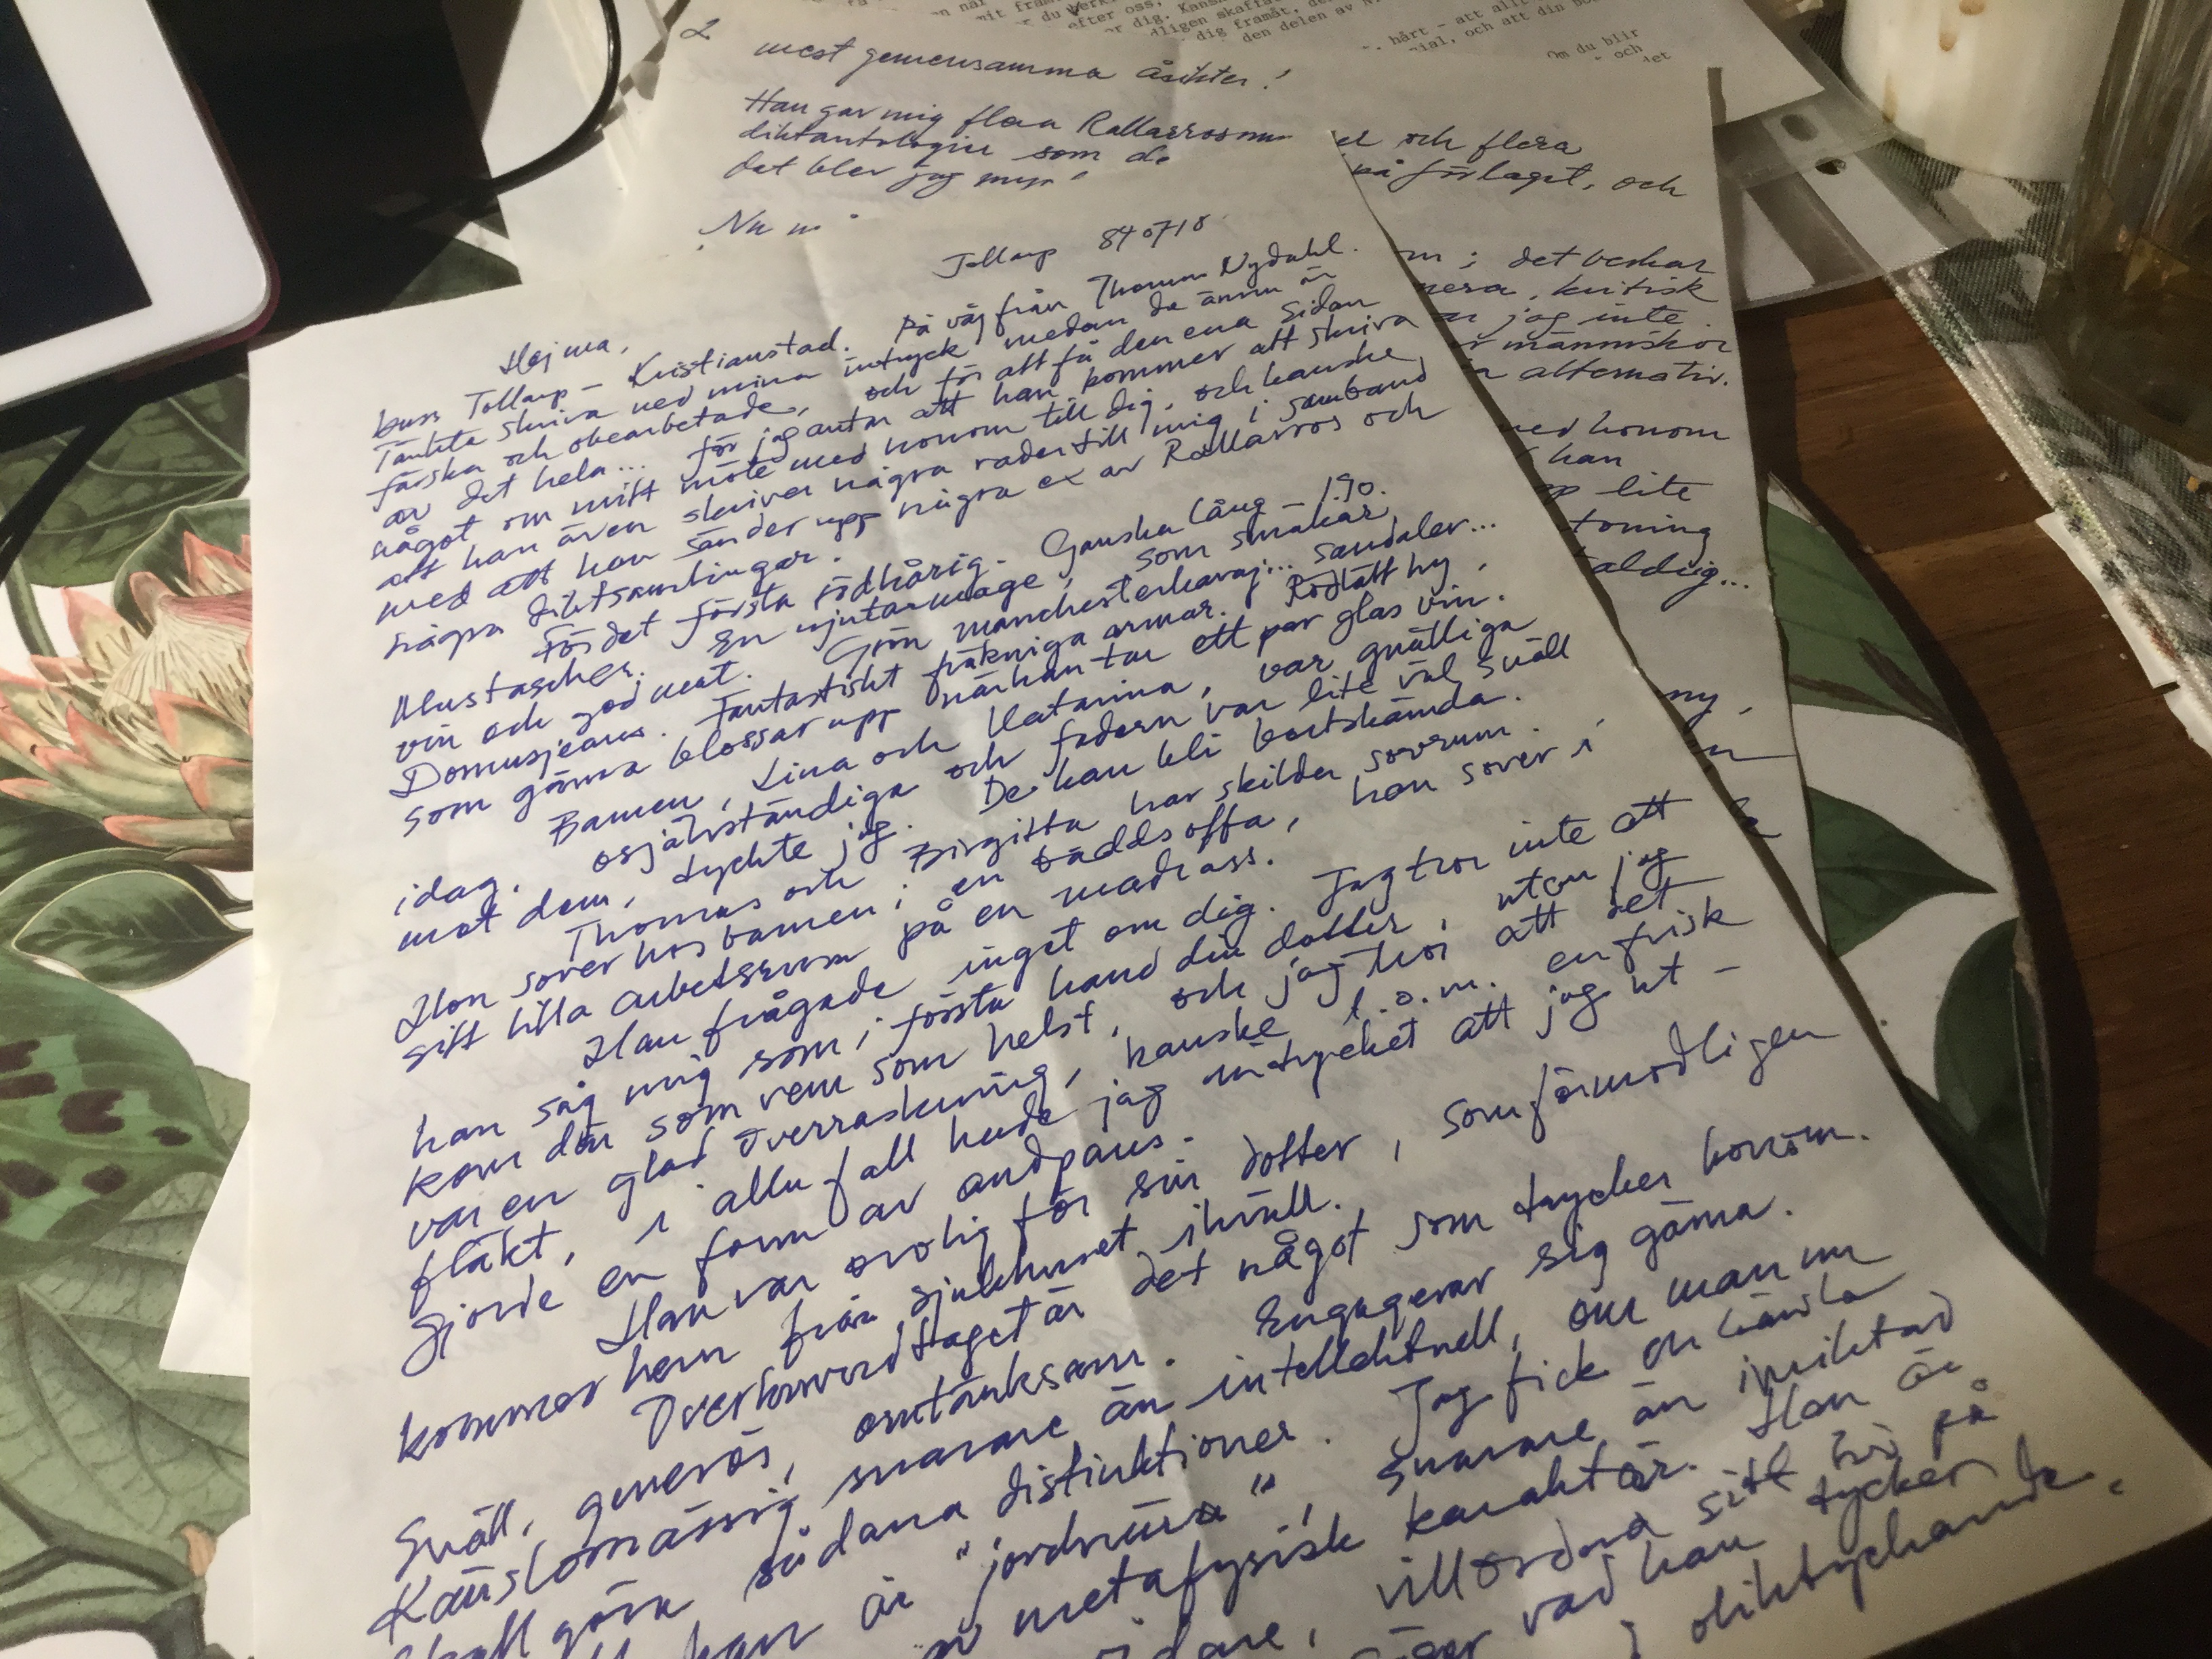 2
mest gemensamma åsikter!
Han gav mig flera Rallarros
diktantologier som de
det blev jag
Nu
efter oss,
dig. Kans
dligen skaffa
dig framåt, de
den delen av
hårt - att allt
ial, och att din
Om du blir
och
det
och flera
på förlaget, och
det verkar
kritisk
jag inte.
människor
alternativ.
med honom
han
lite
toning
aldrig...
ny,
Tollarp 840718
Hej ma,
På väg från Thomas Nydahl.
buss Tollarp - Kristianstad.
Tänkte skriva ned mina intryck medan de ännu är
färska och obearbetade, och för att få den ena sidan
av det hela... för jag antar att han kommer att skriva
något om mitt möte med honom till dig, och kanske
att han även skriver några rader till mig i samband
med att han sänder upp några ex av Rallarros och
några diktsamlingar.
För det första rödhårig. Ganska lång - 190.
Mustascher. En njutarmage, som smakar
vin och god mat. Grön manchesterkavaj... sandaler...
Domusjeans. Fantastiskt fräkniga armar. Rödlätt hy,
som gärna blossar upp när han tar ett par glas vin.
Barnen, Lina och Katarina, var gnälliga
idag, osjälvständiga och fadern var lite väl snäll
mot dem, tyckte jag. De kan bli bortskämda.
Thomas och Birgitta har skilda sovrum.
Hon sover hos barnen i en bäddsoffa, han sover i
sitt lilla arbetsrum på en madrass.
Han frågade inget om dig. Jag tror inte att
han såg mig som i första hand din dotter, utan jag
kom där som vem som helst, och jag tror att det
var en glad överraskning, kanske t.o.m. en frisk
fläkt, i alla fall hade jag intrycket att jag ut-
gjorde en form av andpaus.
Han var orolig för sin dotter, som förmodligen
kommer hem från sjukhuset ikväll.
Överhuvudtaget är det något som trycker honom.
Snäll, generös, omtänksam. Engagerar sig gärna.
Känslomässig, snarare än intellektuell, om man nu
skall göra sådana distinktioner. Jag fick en känsla
han är "jordnära", snarare än inriktad
av metafysisk karaktär. Han är
vill ordna sitt liv på
vad han tycker
oliktyckande.